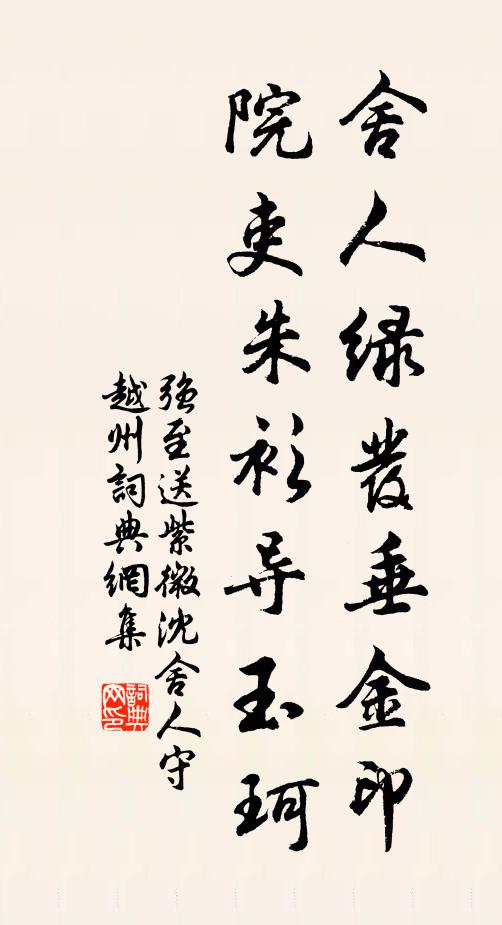 舍人绿發垂金印
院吏朱衫导玉珂
强至送紫微沈舍人守
越州詞典網集
詞典网印